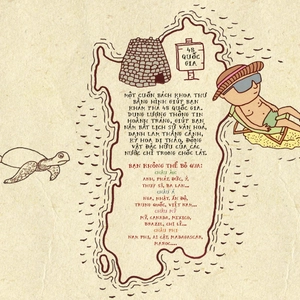 48
QUỐC
GIA
MỘT CUỐN BÁCH KHOA THƯ
BẰNG HÌNH GIÚP BẠN
KHÁM PHÁ 48 QUỐC GIA.
DUNG LƯỢNG THÔNG TIN
HOÀNH TRÁNG, GIÚP BẠN
NẮM BẮT LỊCH SỬ VĂN HÓA,
DANH LAM THẮNG CẢNH,
KỲ HOA DỊ THẢO, ĐỘNG
VẬT ĐẶC HỮU CỦA CÁC
NƯỚC CHỈ TRONG CHỐC LÁT.
BẠN KHÔNG THỂ BỎ QUA:
CHÂU ÂU
ANH, PHÁP, ĐỨC, Ý,
THỤY SĨ, BA LAN...
CHÂU Á
NGA, NHẬT, ẤN ĐỘ,
TRUNG QUỐC, VIỆT NAM...
CHÂU MỸ
MỸ, CANADA, MEXICO,
BRAZIL, CHI LÊ...
CHÂU PHI
NAM PHI, AI CẬP, MADAGASCAR,